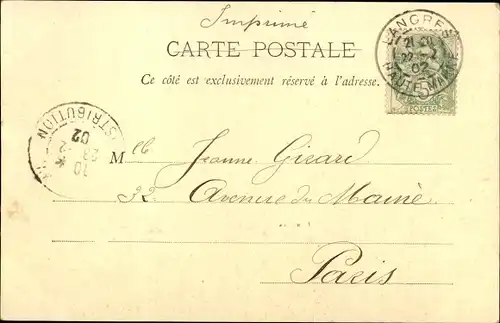 Imprimé
CARTE POSTALE
Ce côté est exclusivement réservé à l'adresse.
LANGRES
02
HAUTE-MARNE
POSTES
DISTRIBUTION
10
02
Mlle Jeanne Girard
32 Avenue du Maine
Paris